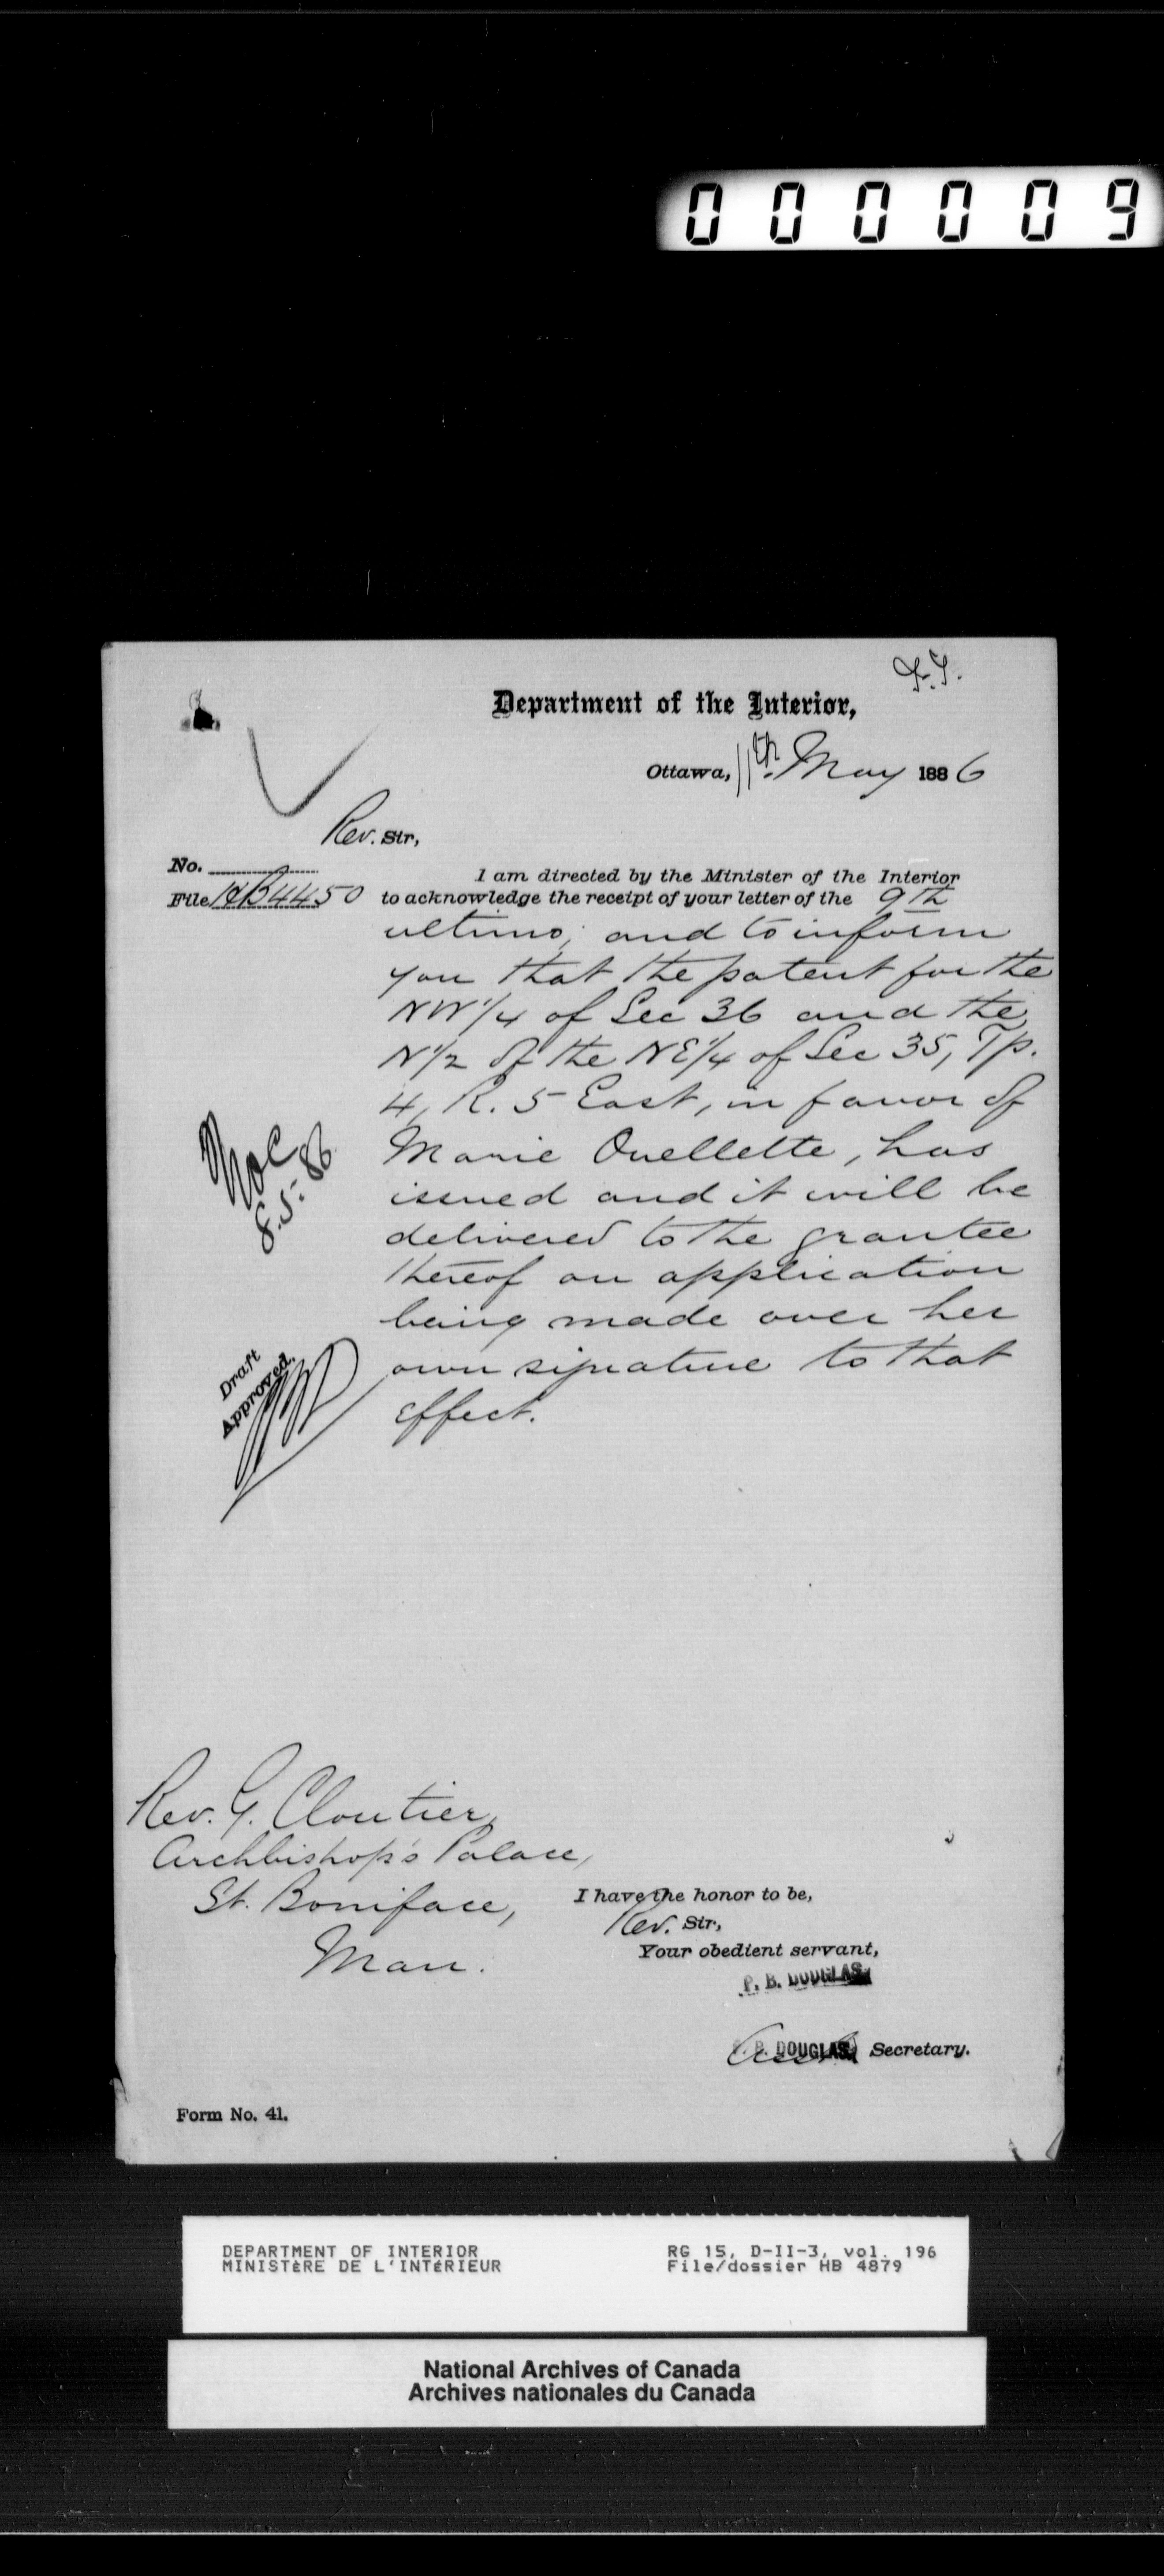 000009
Department of the Interior,
Ottawa, 11th. May 1886
Rev. Sir,
No.
File HB4450
I am directed by the Minister of the Interior
to acknowledge the receipt of your letter of the 9th
ultimo, and to inform
you that the patent for the
NW 1/4 of Sec 36 and the
N 1/2 of the NE 1/4 of Sec 35, Tp.
4, R. 5 East, in favor of
Marie Ouellette, has
issued and it will be
delivered to the grantee
thereof on application
being made over her
own signature to that
effect.
8.5.'86
Draft
Approved.
Rev. G. Cloutier,
Archbishop's Palace,
St. Boniface,
Man.
I have the honor to be,
Rev. Sir,
Your obedient servant,
P. B. DOUGLAS
P. B. DOUGLAS Secretary.
Form No. 41.
DEPARTMENT OF INTERIOR
MINISTÈRE DE L'INTÉRIEUR
RG 15, D-II-3, vol. 196
File/dossier HB 4879
National Archives of Canada
Archives nationales du Canada